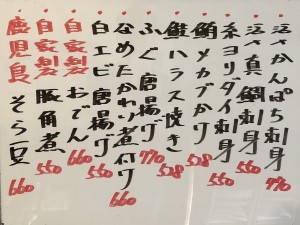 活〆かんぱち刺身 770
活〆真鯛刺身 550
糸ヨリダイ刺身 660
鮪メカブかけ 528
鮭ハラス焼き 528
ふぐ唐揚げ 770
なめたかれい煮付け 660
白エビ唐揚げ 550
自家製おでん 660
自家製豚角煮 550
鹿児島そら豆 660